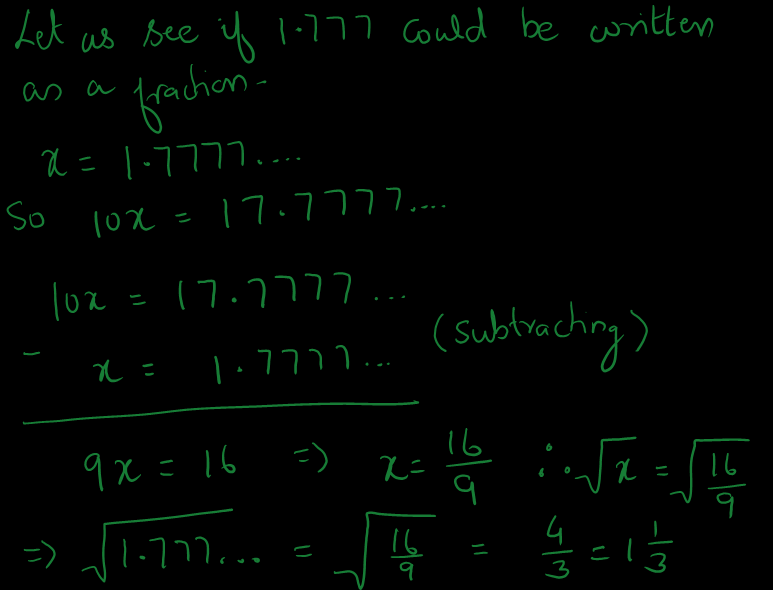 Let us see if 1.777 could be written
as a fraction.
x = 1.7777....
So 10x = 17.7777....
10x = 17.7777...
- x = 1.7777... (subtracting)
9x = 16 ⇒ x = 16/9 ∴ √x = √(16/9)
⇒ √(1.777...) = √(16/9) = 4/3 = 1 1/3